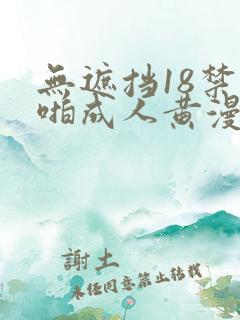 無遮挡18禁
啪成人黄漫
謝土
未经同意禁止转载